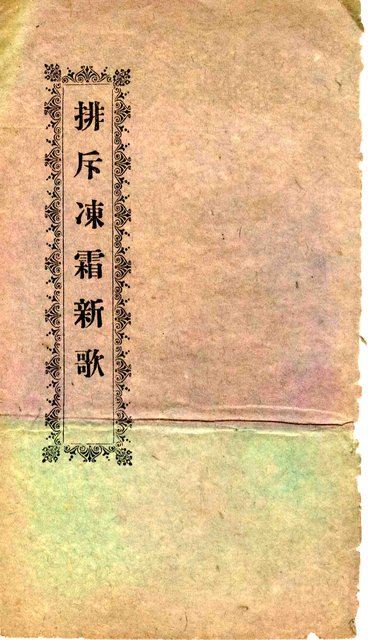 排斥凍霜新歌